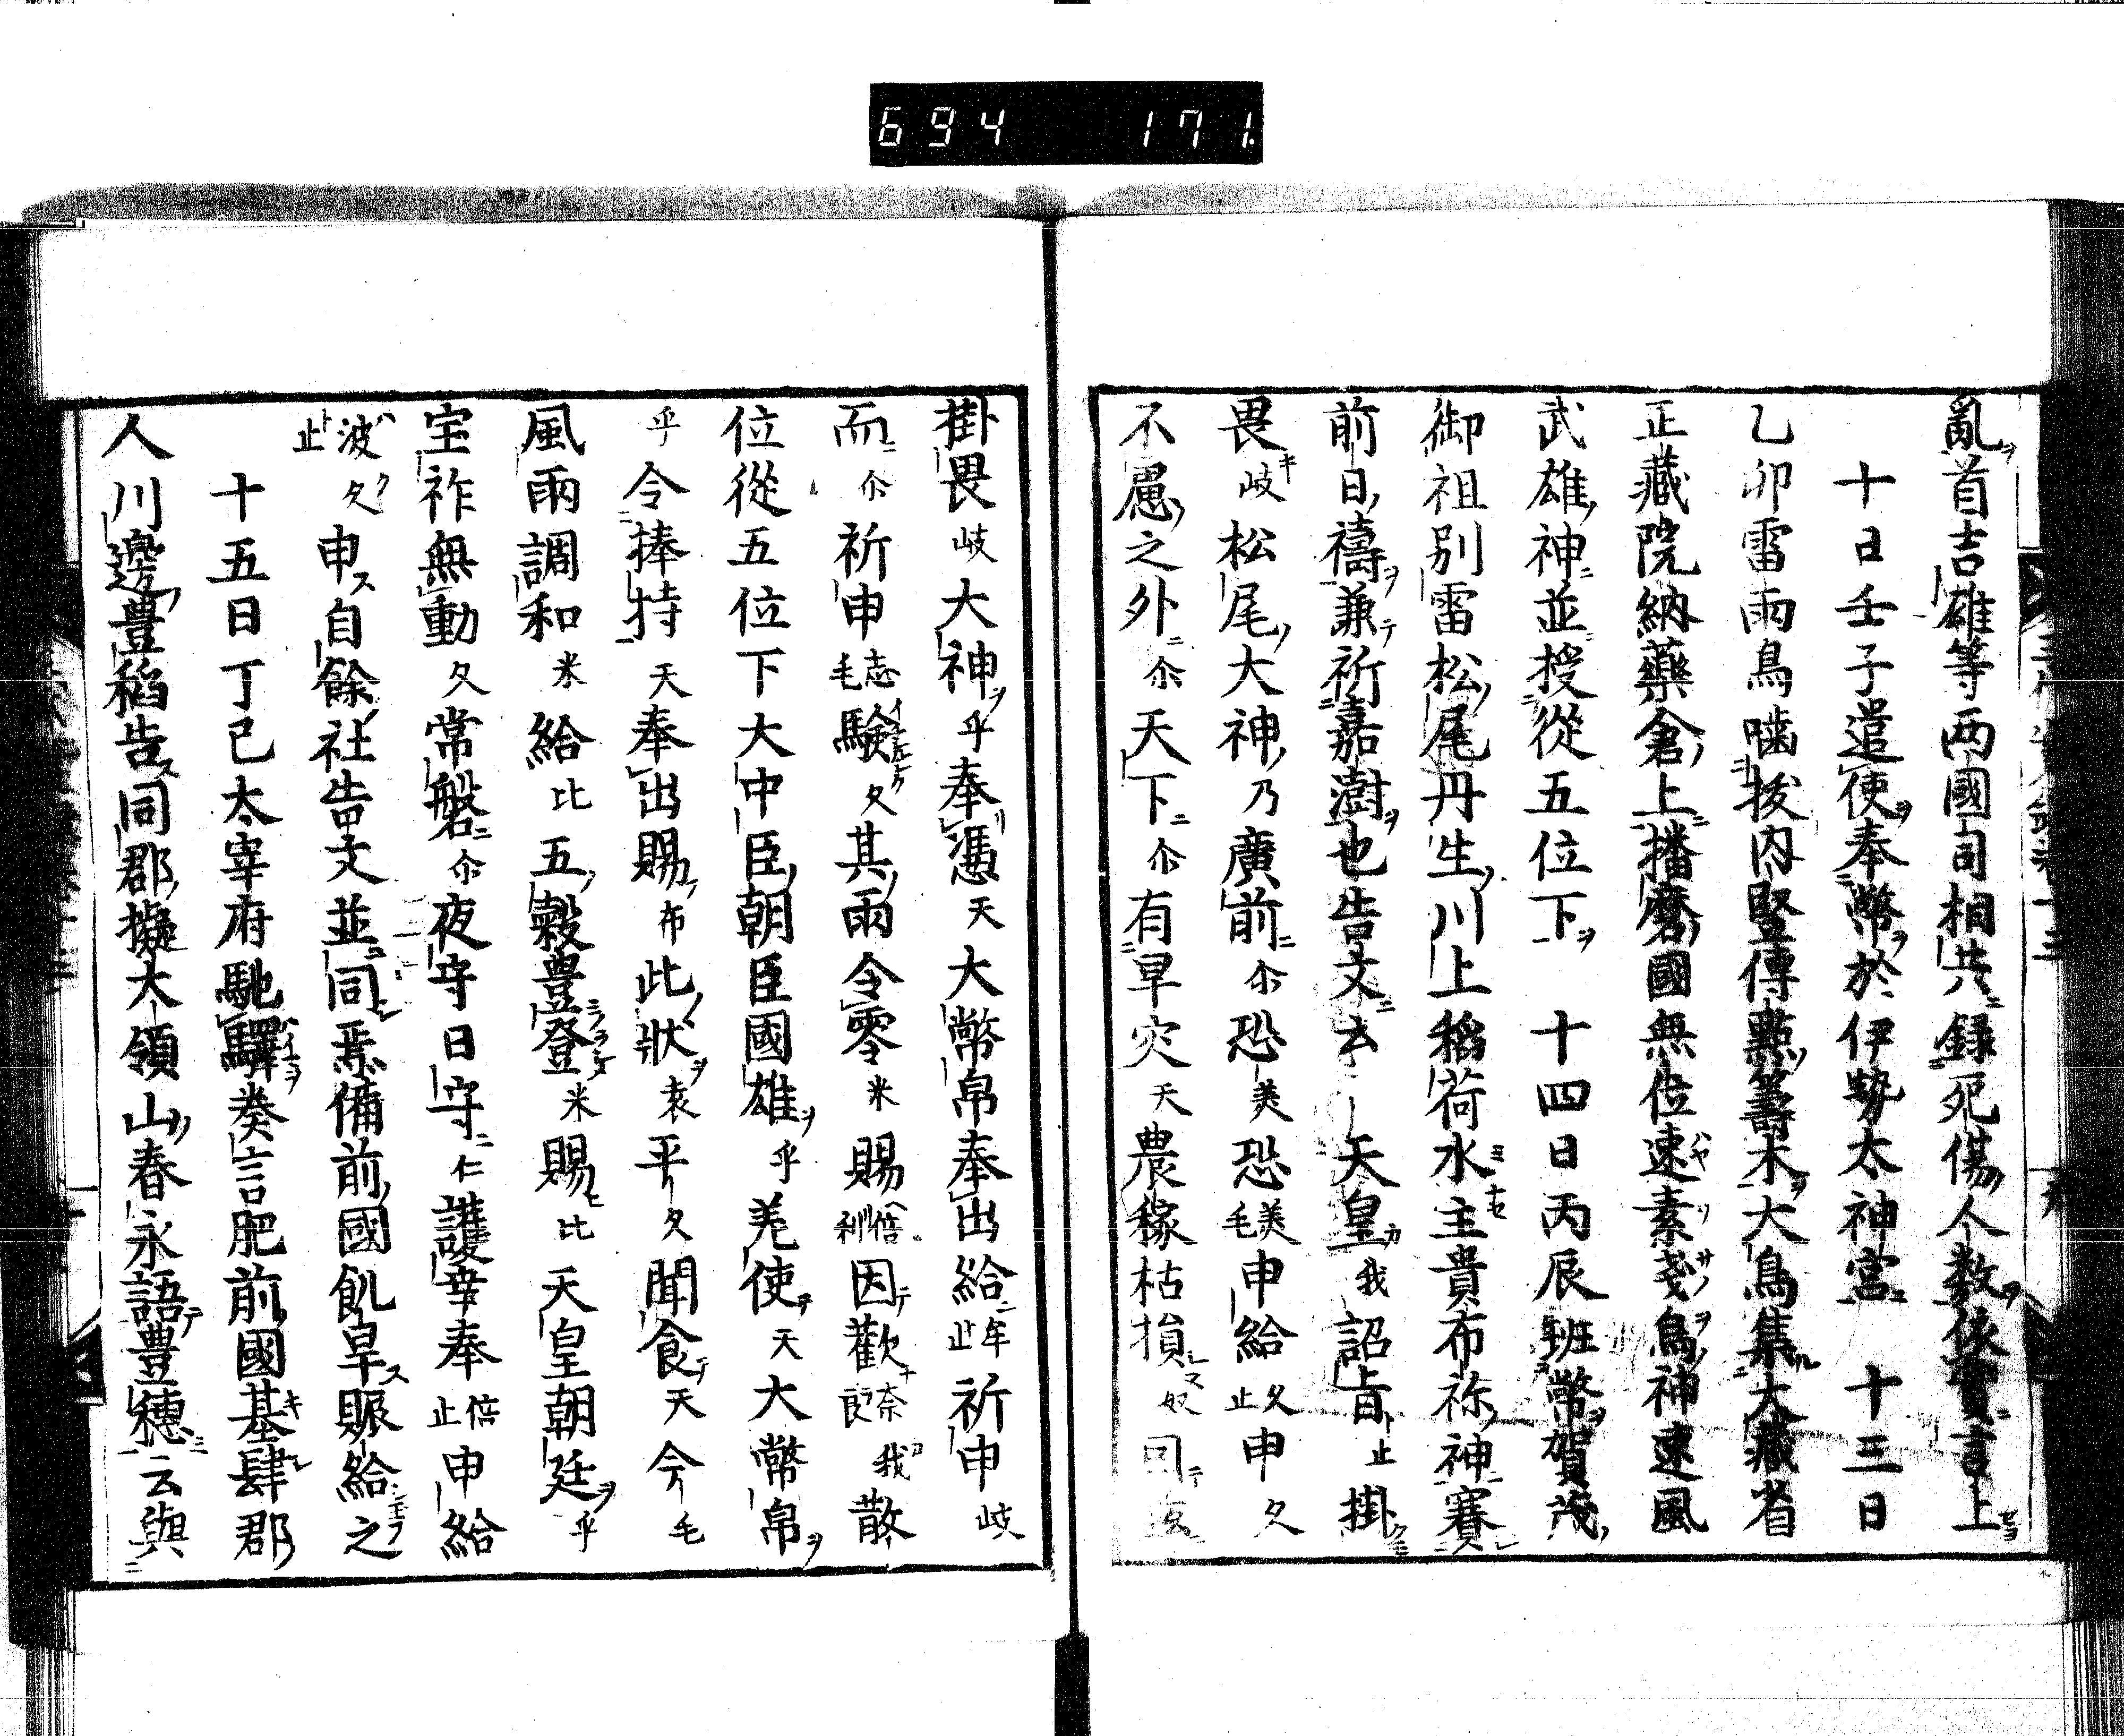 694 171.
亂首吉雄等两國司相共録死傷人数依實言上
十日壬子遣使奉幣於伊勢太神宮 十三日
乙卯雷雨鳥嚙拔内竪傳點籌木大鳥集大藏省
正藏院納藥倉上播磨國無位速素戔烏神速風
武雄神並授從五位下 十四日丙辰班幣賀茂
御祖別雷松尾丹生川上稻荷水主貴布祢神賽
前日禱兼祈嘉澍也告文云天皇我詔旨止掛
畏岐松尾大神乃廣前尒恐美恐美毛申給久止申久
不慮之外尒天下尒有旱灾天農稼枯損奴
掛畏岐大神乎奉憑天大幣帛奉出給牟止祈申岐
而尒祈申志毛驗久其雨令零米賜倍利因歡奈良我散
位從五位下大中臣朝臣國雄乎差使天大幣帛
乎令捧持天奉出賜布此狀袁平久聞食天今毛
風雨調和米給比五穀豊登米賜比天皇朝廷乎
宝祚無動久常磐尒夜守日守仁護幸奉倍止申給
波久止申自餘社告文並同焉備前國飢旱賑給之
十五日丁巳太宰府馳驛奏言肥前國基肆郡
人川邊豊稻告同郡擬大領山春永語豊穗云與